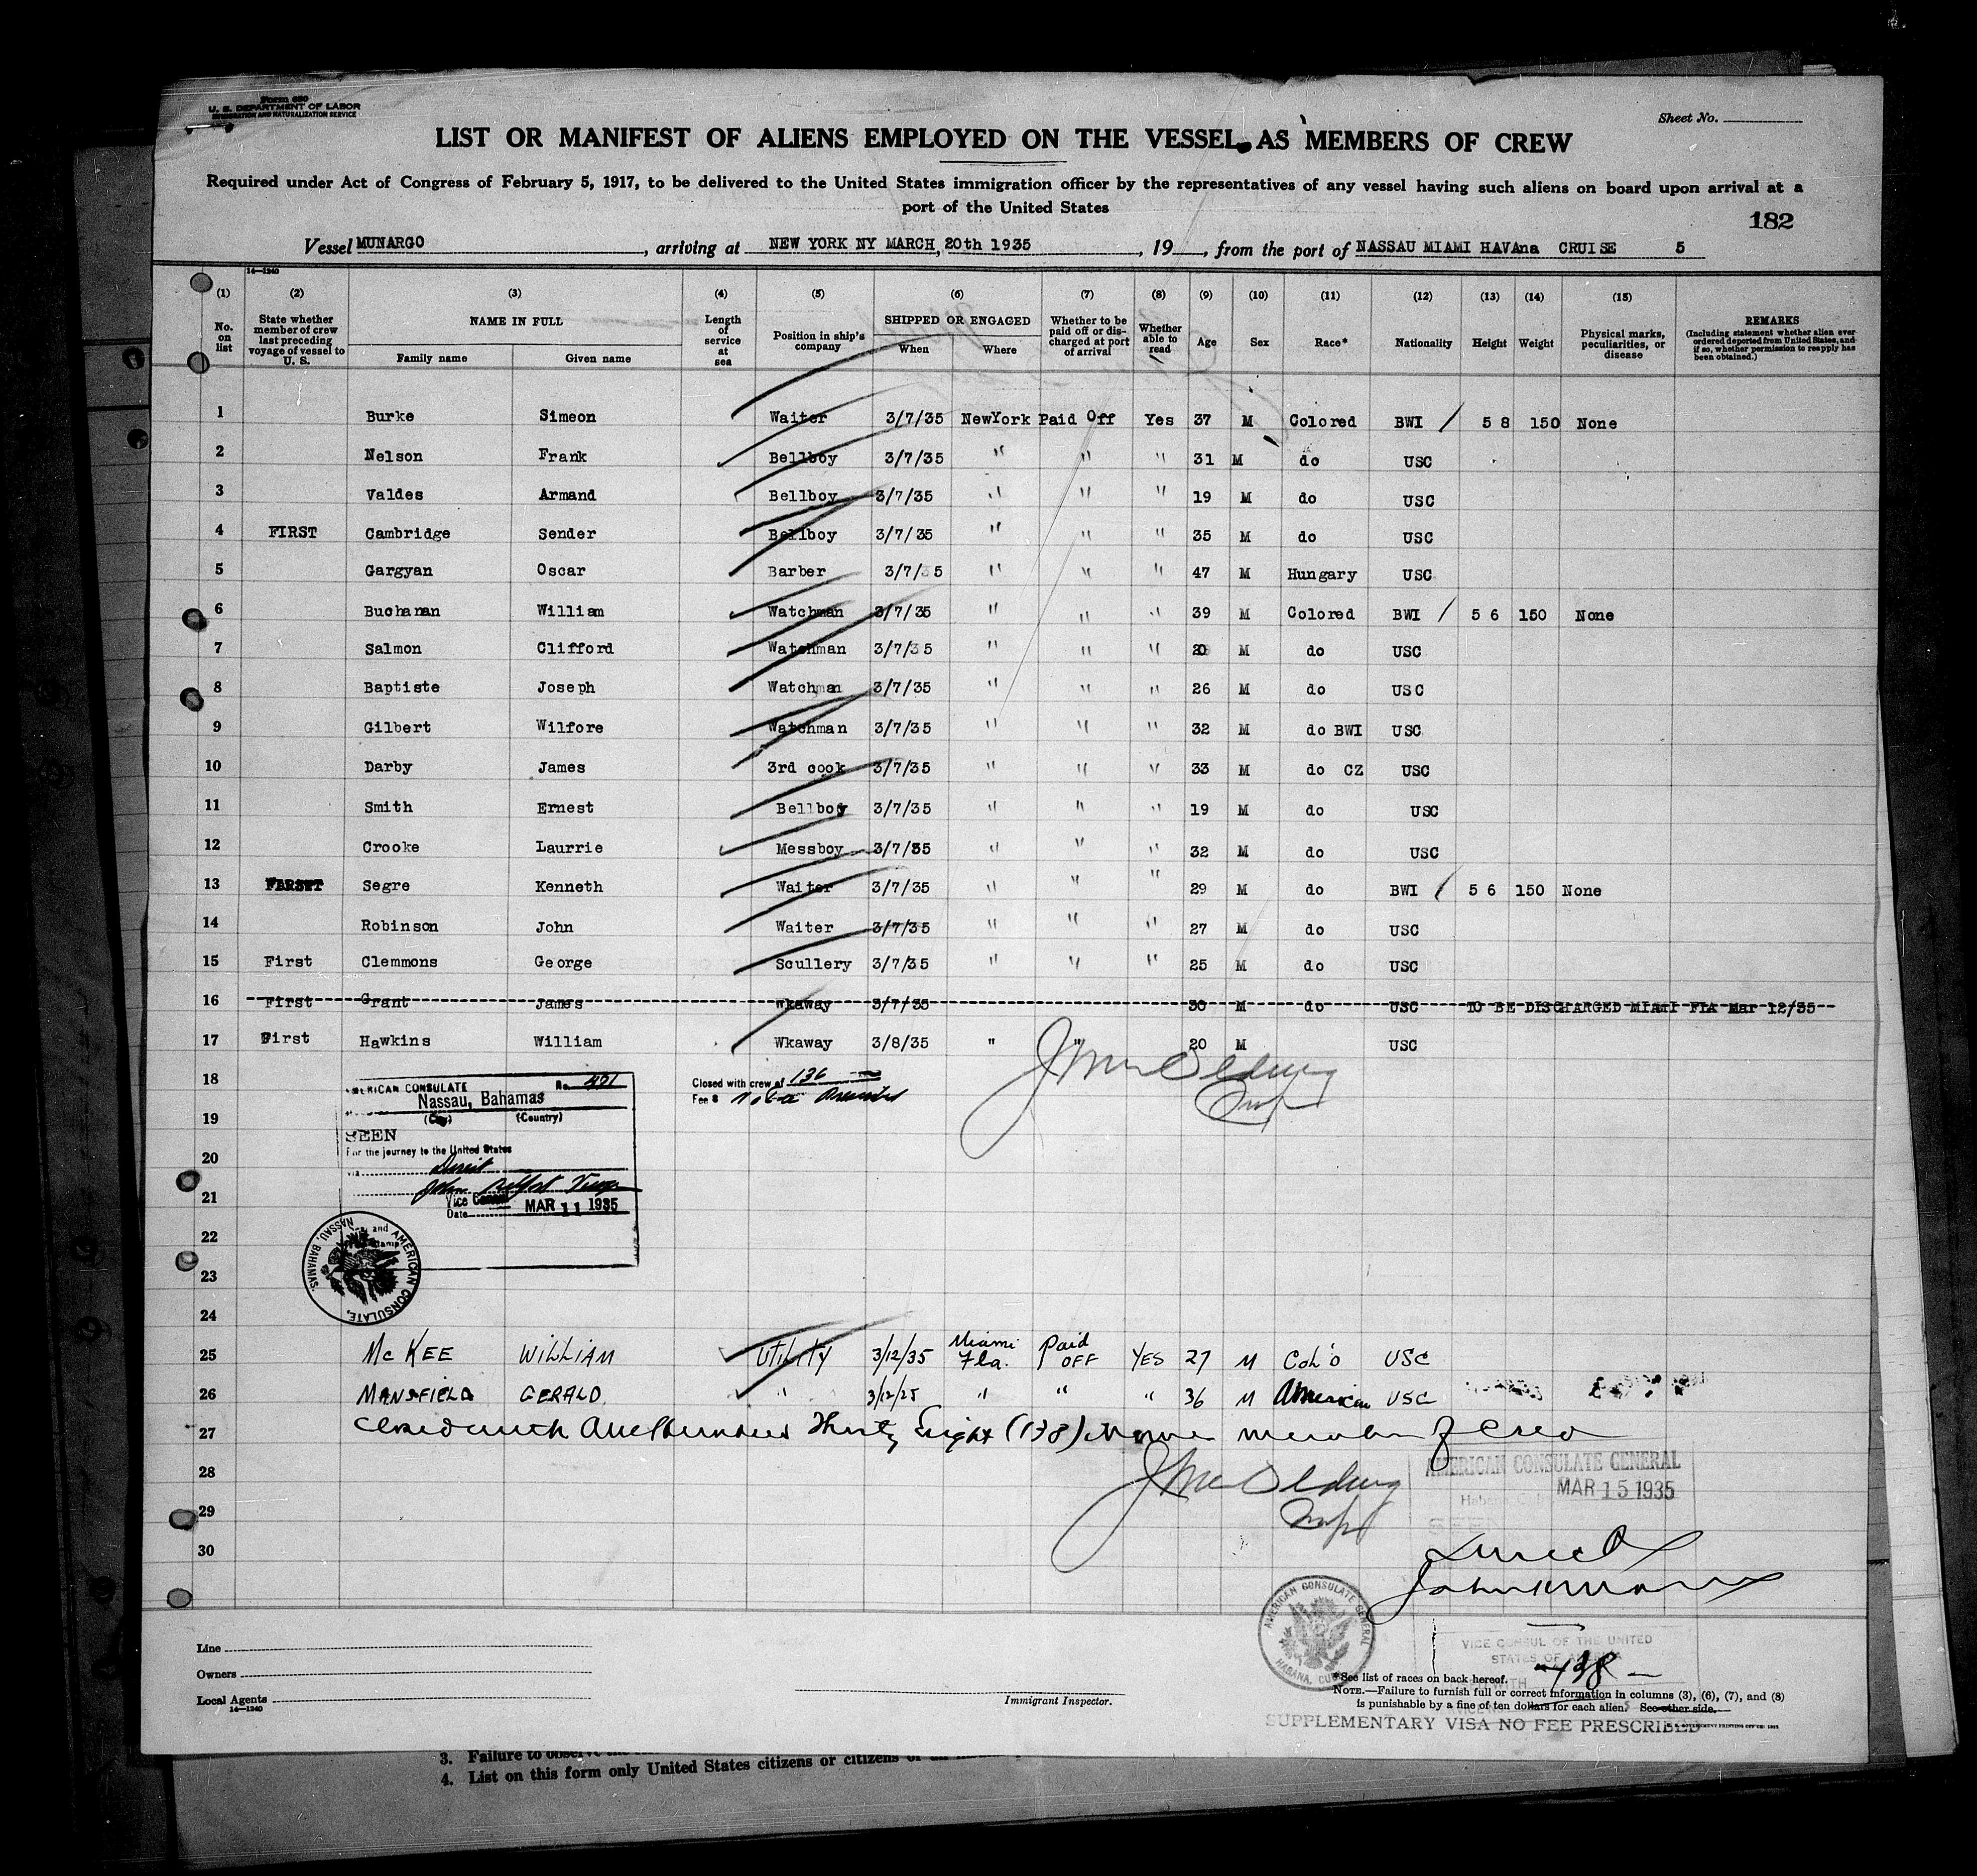 Form 680
U. S. DEPARTMENT OF LABOR
IMMIGRATION AND NATURALIZATION SERVICE
Sheet No.
LIST OR MANIFEST OF ALIENS EMPLOYED ON THE VESSEL AS MEMBERS OF CREW
Required under Act of Congress of February 5, 1917, to be delivered to the United States immigration officer by the representatives of any vessel having such aliens on board upon arrival at a
port of the United States
182
Vessel MUNARGO, arriving at NEW YORK NY MARCH, 20th 1935, 19, from the port of NASSAU MIAMI HAVAna CRUISE 5
14—1240
(1) (2) (3) (4) (5) (6) (7) (8) (9) (10) (11) (12) (13) (14) (15)
No. on list
State whether member of crew last preceding voyage of vessel to U. S.
NAME IN FULL
Family name Given name
Length of service at sea
Position in ship's company
SHIPPED OR ENGAGED
When Where
Whether to be paid off or discharged at port of arrival
Whether able to read
Age Sex Race* Nationality Height Weight
Physical marks, peculiarities, or disease
REMARKS
(Including statement whether alien ever ordered deported from United States, and if so, whether permission to reapply has been obtained.)
1 Burke Simeon Waiter 3/7/35 NewYork Paid Off Yes 37 M Colored BWI / 5 8 150 None
2 Nelson Frank Bellboy 3/7/35 " " " 31 M do USC
3 Valdes Armand Bellboy 3/7/35 " " " 19 M do USC
4 FIRST Cambridge Sender Bellboy 3/7/35 " " " 35 M do USC
5 Gargyan Oscar Barber 3/7/35 " " " 47 M Hungary USC
6 Buchanan William Watchman 3/7/35 " " " 39 M Colored BWI / 5 6 150 None
7 Salmon Clifford Watchman 3/7/35 " " " 20 M do USC
8 Baptiste Joseph Watchman 3/7/35 " " " 26 M do USC
9 Gilbert Wilfore Watchman 3/7/35 " " " 32 M do BWI USC
10 Darby James 3rd cook 3/7/35 " " " 33 M do CZ USC
11 Smith Ernest Bellboy 3/7/35 " " " 19 M do USC
12 Crooke Laurrie Messboy 3/7/35 " " " 32 M do USC
13 Segre Kenneth Waiter 3/7/35 " " " 29 M do BWI / 5 6 150 None
14 Robinson John Waiter 3/7/35 " " " 27 M do USC
15 First Clemmons George Scullery 3/7/35 " " " 25 M do USC
16 First Grant James Wkaway 3/7/35 30 M do USC TO BE DISCHARGED MIAMI FLA Mar 12/35
17 First Hawkins William Wkaway 3/8/35 " " 20 M USC
18
19
20
21
22
23
24
AMERICAN CONSULATE No.
Nassau, Bahamas
(City) (Country)
SEEN
For the journey to the United States
via
Vice Consul
Date MAR 11 1935
AMERICAN CONSULATE, NASSAU, BAHAMAS.
Closed with crew of 136
Fee $
25 McKEE WILLIAM UTILITY 3/12/35 Miami Fla. Paid OFF YES 27 M Col'd USC
26 MANSFIELD GERALD " 3/12/35 " " " 36 M American USC
27 Closed with One Hundred Thirty Eight (138) members of Crew
28
29
30
AMERICAN CONSULATE GENERAL
MAR 15 1935
SEEN
AMERICAN CONSULATE GENERAL HABANA, CUBA
VICE CONSUL OF THE UNITED
STATES OF AMERICA
138
Line
Owners
Local Agents
14—1240
Immigrant Inspector.
*See list of races on back hereof.
NOTE.—Failure to furnish full or correct information in columns (3), (6), (7), and (8)
is punishable by a fine of ten dollars for each alien. See other side.
SUPPLEMENTARY VISA NO FEE PRESCRIBED
3. Failure to observe
4. List on this form only United States citizens or citizens of